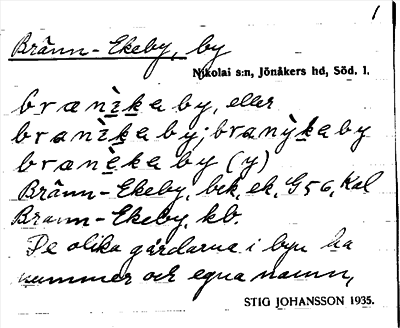 1
Bränn-Ekeby, by
Nikolai s:n, Jönåkers hd, Söd. l.
brænìkaby, eller
branìkaby; branỳkaby
branèkaby (y)
Bränn-Ekeby, bek, ek, G56, Kal
Brann-Ekeby, kb.
De olika gårdarna i byn ha
nummer och egna namn,
STIG JOHANSSON 1935.